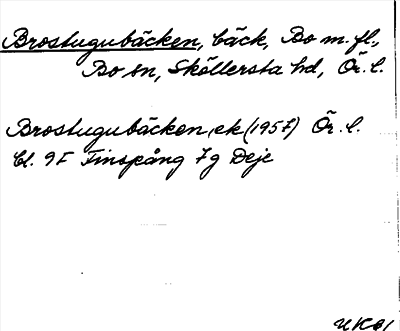 Brostugubäcken, bäck, Bo m. fl.,
Bo sn, Sköllersta hd, Ör. l.
Brostugubäcken, ek (1957) Ör. l.
bl. 9F Finspång 7g Deje